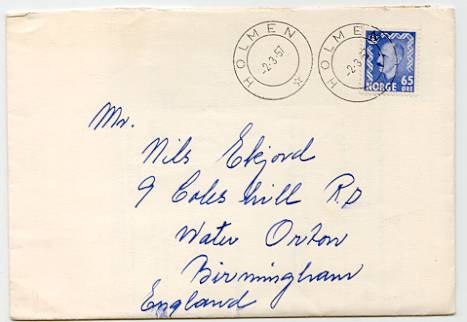 HOLMEN
-2·3·57
HOLMEN
-2·3
65
NORGE ØRE
Mr.
Nils Ekjord
9 Coles hill Rd
Water Orton
Birmingham
England